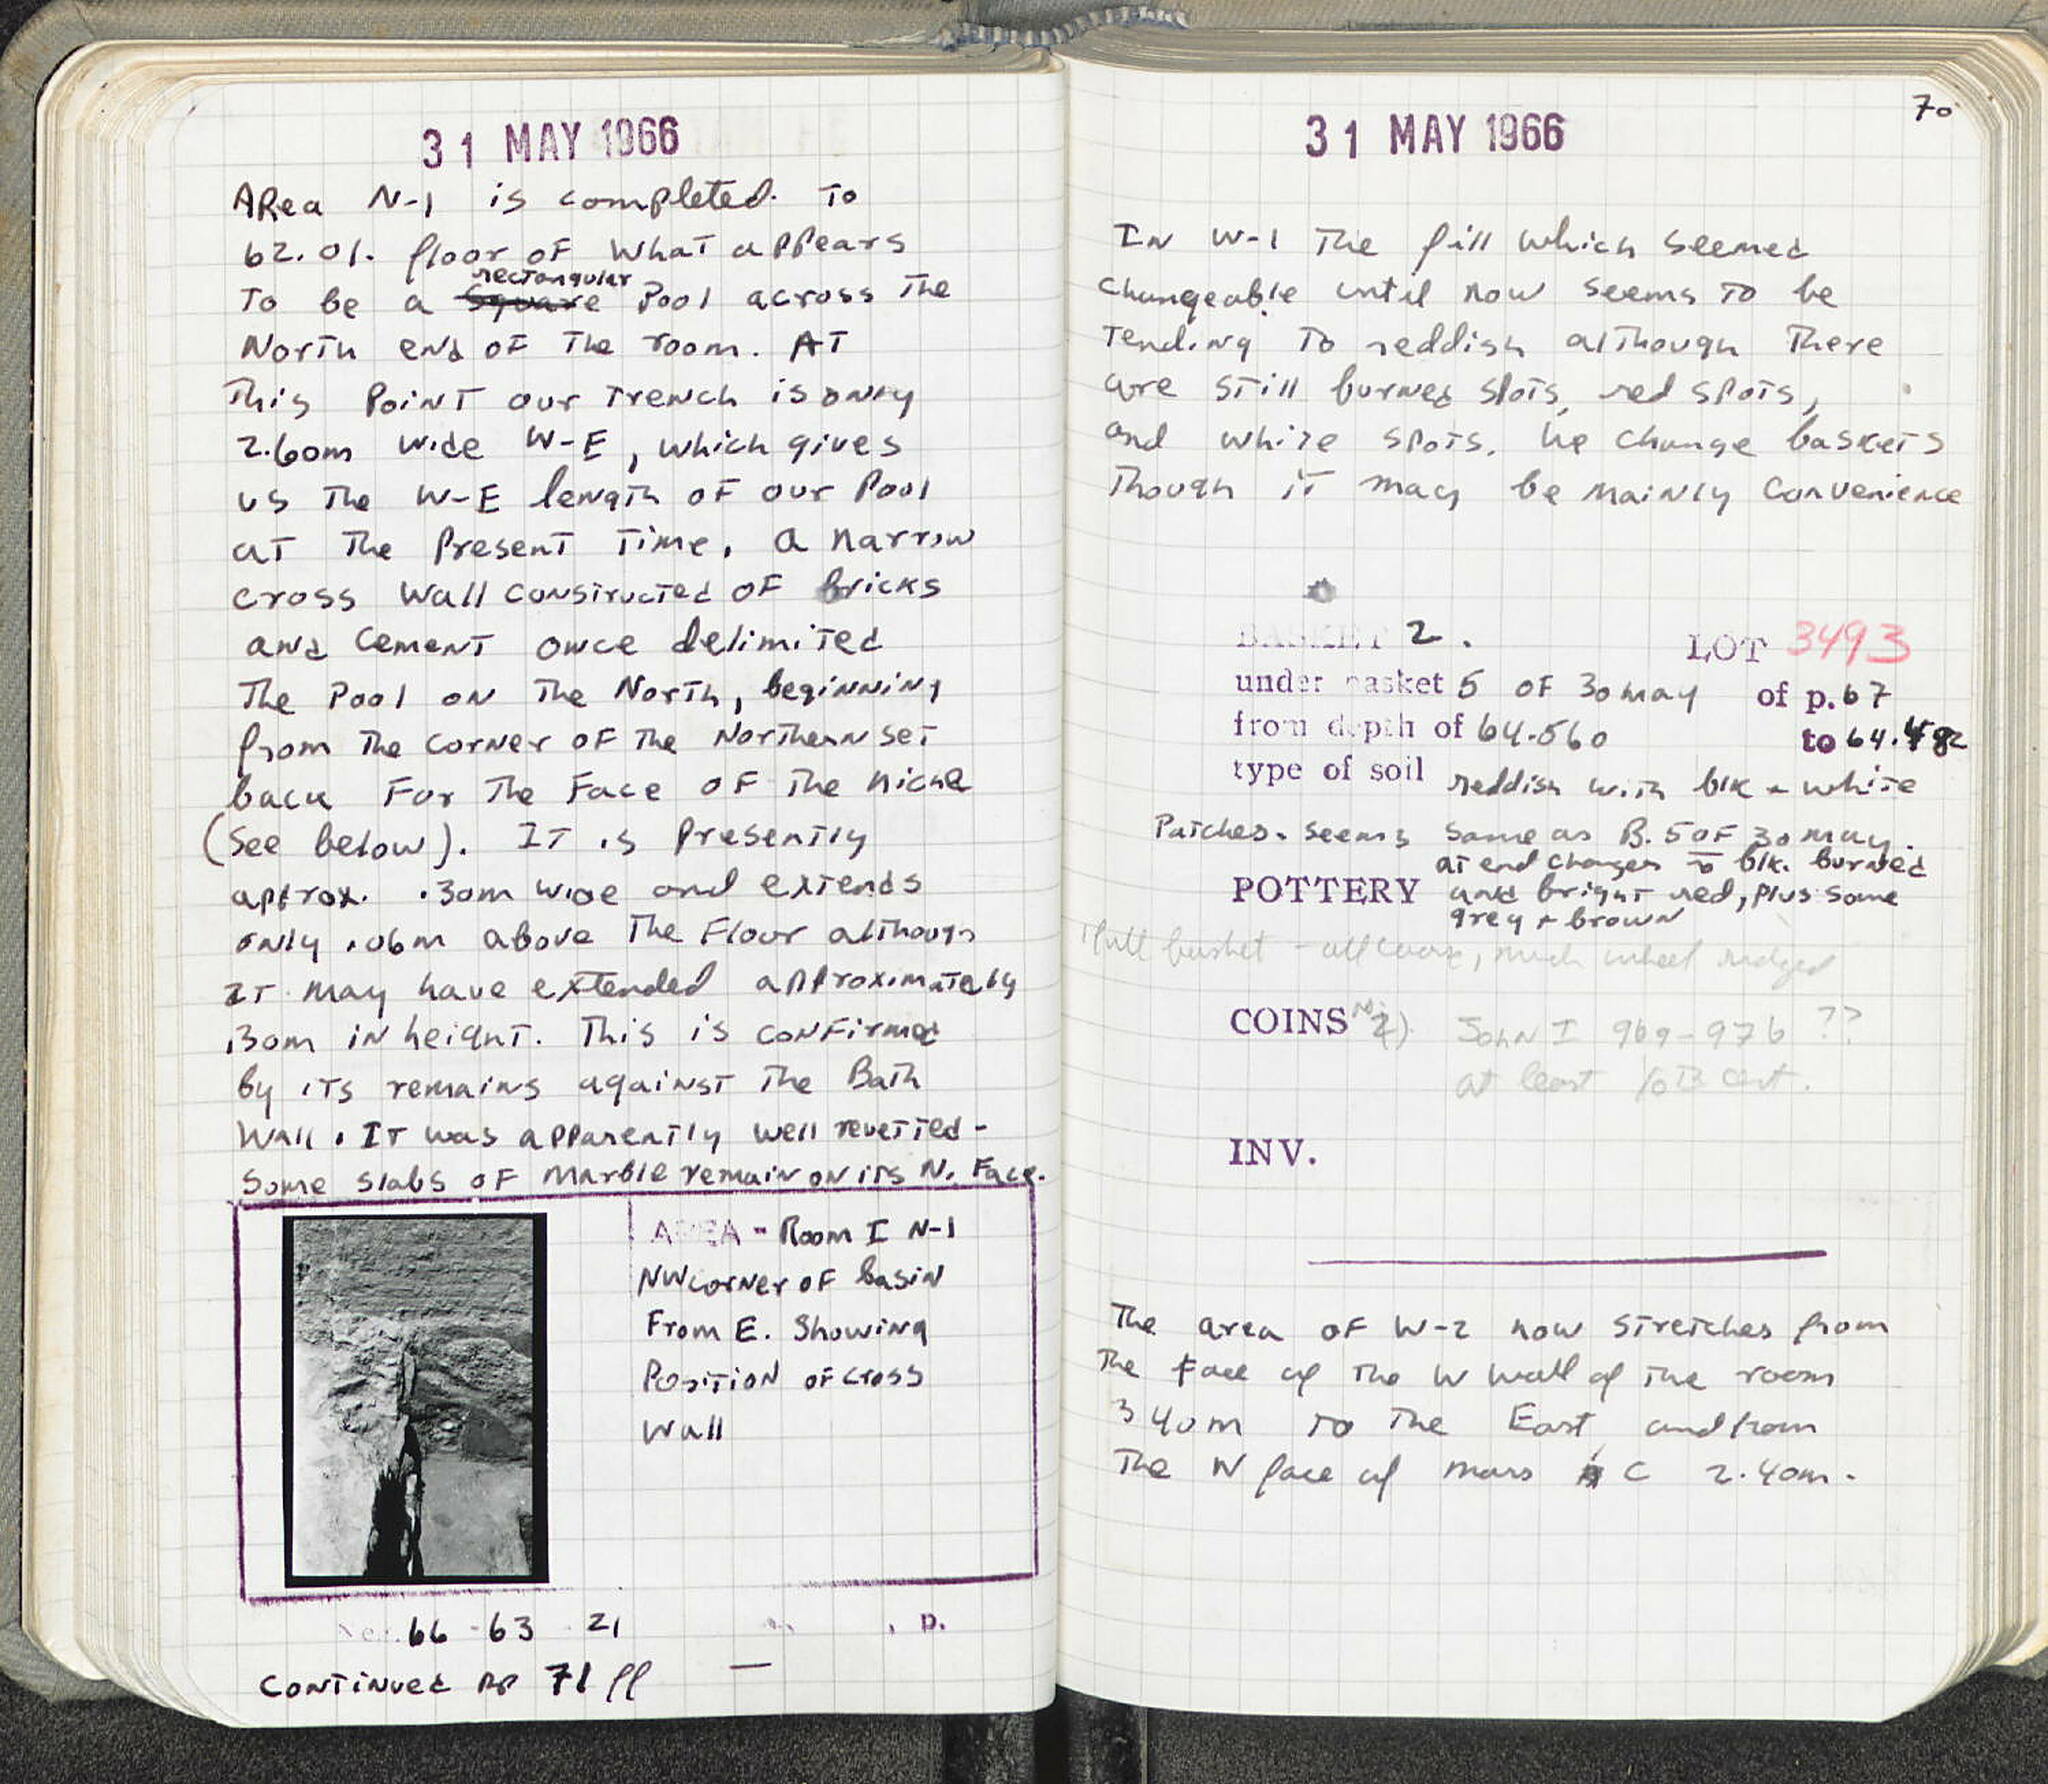 31 MAY 1966
Area N-1 is completed. To
62.01. floor of what appears
rectangular
to be a Square Pool across the
North end of the room. At
This Point our trench is only
2.60m wide W-E, which gives
us the W-E length of our Pool
at the Present time. A narrow
cross wall constructed of bricks
and cement once delimited
The Pool on the North, beginning
from the corner of the Northern set
back for the face of the niche
(see below). It is Presently
approx. .30m wide and extends
only .06m above the Floor although
it may have extended approximately
.30m in height. This is confirmed
by its remains against the Bath
Wall. It was apparently well revetted-
Some slabs of marble remain on its N. Face.
AREA - Room I N-1
NW corner of basin
From E. Showing
Position of cross
Wall
Neg. 66-63-21
, p.
Continued pp 71 ff
70
31 MAY 1966
In W-1 The fill which seemed
changeable until now seems to be
tending to reddish although there
are still burned slots, red spots,
and white spots. We change baskets
though it may be mainly convenience
BASKET 2.
LOT 3493
under basket 5 of 30 may of p. 67
from depth of 64.560 to 64.482
type of soil reddish with blk + white
Patches. seems same as B. 5 of 30 may.
at end changes to blk. burned
POTTERY and bright red, plus some
grey + brown
1 full basket - all coarse, much wheel ridged
COINS No 2) John I 969-976 ??
at least 10th cent.
INV.
The area of W-2 now stretches from
the face of the W wall of the room
3 40m to the East and from
the N face of mars C 2.40m.